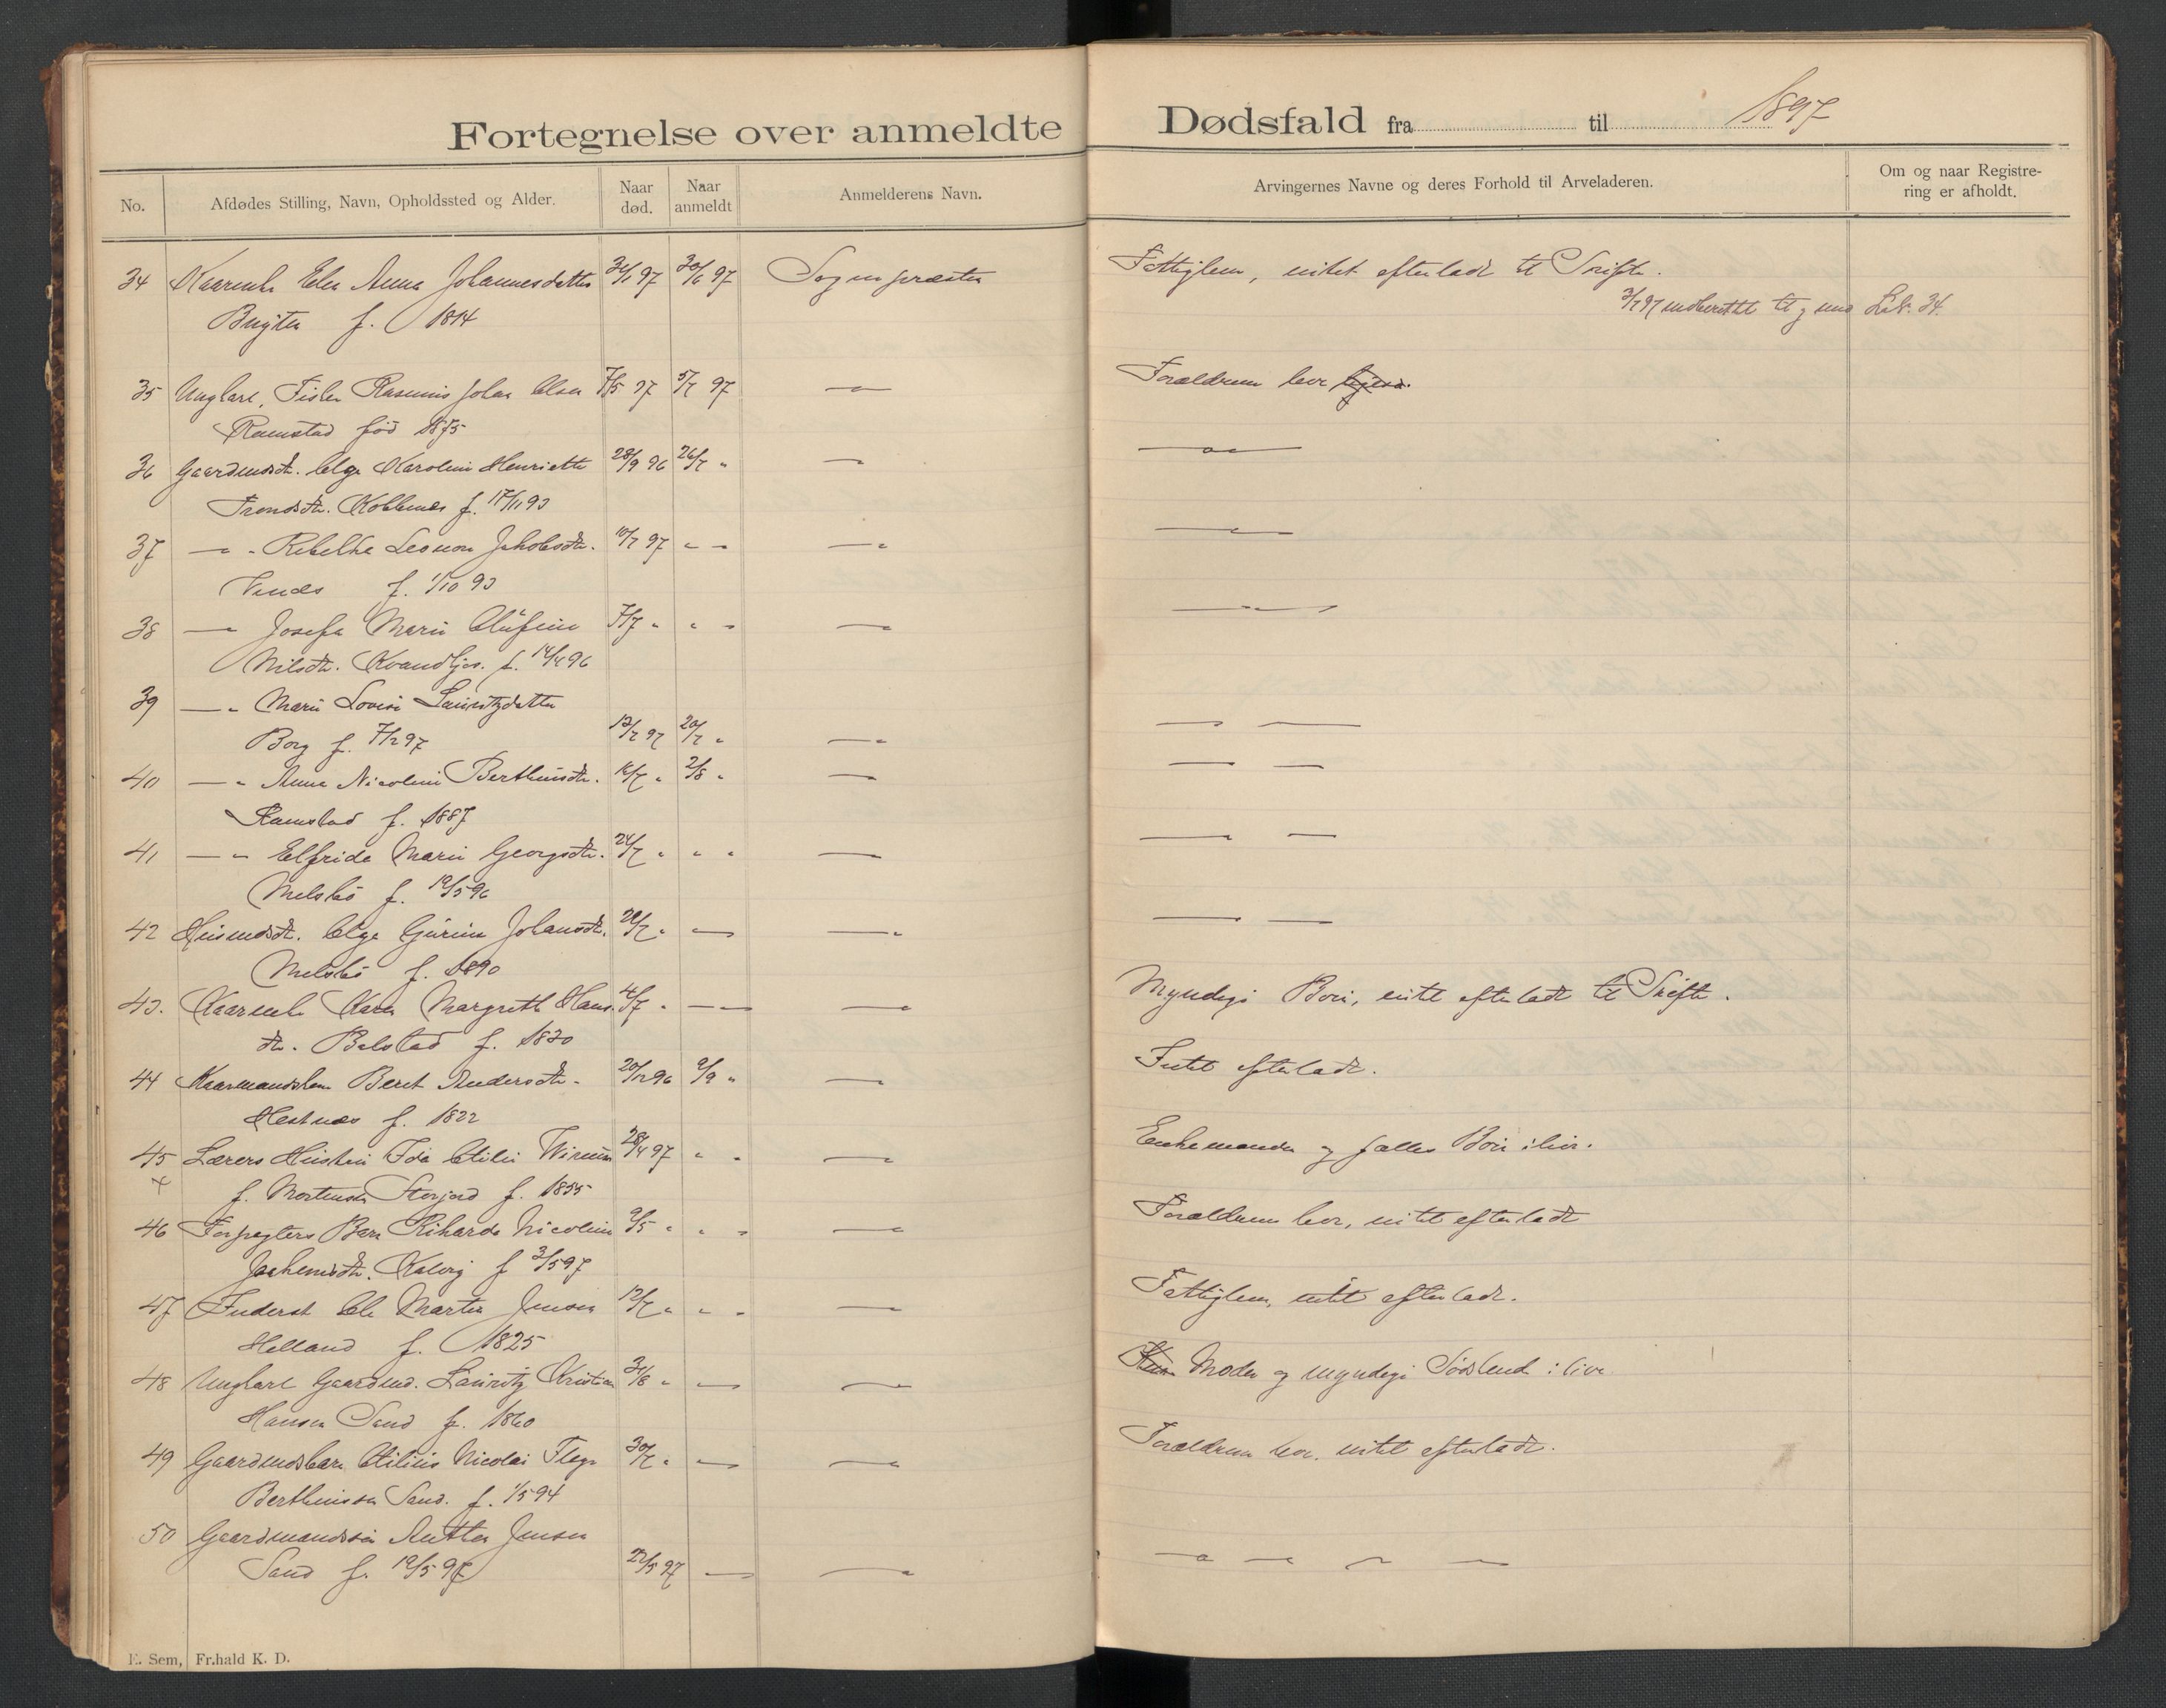 Fortegnelse over anmeldte Dødsfald fra til 1897
No. Afdødes Stilling, Navn, Opholdssted og Alder. Naar død. Naar anmeldt Anmelderens Navn. Arvingernes Navne og deres Forhold til Arveladeren. Om og naar Registrering er afholdt.
34 Kaarenke Anna Johannesdatter 97 30/6 97 Sognepræsten Fattiglem, intet efterladt til Skifte.
f. 1814 3/7 97 indberettet til Lit. 34.
35 Ungkarl, Fisker Rasmus Johan Olsen 7/5 97 5/7 97 — Forældrene lever
Ramstad født 1875
36 Gaardmdsdtr. Olga Karoline Henriette 28/9 96 26/7 " — —
Trondsdtr. f. 17/11 93
37 — " Leonora Jakobsdtr. 10/7 97 " " — —
f. 1/10 93
38 — Josefa Marie Olufine 7/7 " " " — —
Nilsdtr. f. 14/4 96
39 — " Marie Lovise Lauritzdatter
Borg f. 7/2 97 13/7 97 20/7 " — — —
40 — " Anna Nicoline Berthinsdtr. 16/7 " 2/8 " — — —
Ramstad f. 1887
41 — " Elfride Marie Georgsdtr. 24/7 " " " — — —
f. 19/5 96
42 Husmdsdtr. Olga Johansdtr. 7 " — — — —
f. 1890
43. Kaarenke Karen Margreth Hans 4/7 " — — — Myndige Børn, intet efterladt til Skifte.
dtr. Bolstad f. 1820
44 Kaarmands Beret Andersdtr. 20/12 96 9/9 " — Intet efterladt.
Hestnes f. 1822
45 Lærers Hustru Ida Otilie 28/4 97 " " — Enkemanden og fælles Børn ilive.
x f. Mortensen Storjord f. 1855
46 Forpagters Barn Rikarda Nicoline 9/5 " " " — Forældrene lever, intet efterladt
Kalvig f 3/5 97
47 Inderst Ole Martin Jensen 12/7 " " " — Fattiglem, intet efterladt.
Helland f. 1825
48 Ungkarl Gaardmd. Lauritz Kristian 31/8 " — — Moder og myndige Sødskend i live.
Hansen Sand f. 1860
49 Gaardmdsbarn Otilius Nicolai 30/7 " — — Forældrene lever, intet efterladt.
Berthinsen Sand. f. 1/5 94
50 Gaardmandssøn Anton Jensen
Sand f. 19/5 97 22/5 97 — — — — — —
E. Sem, Fr.hald K. D.